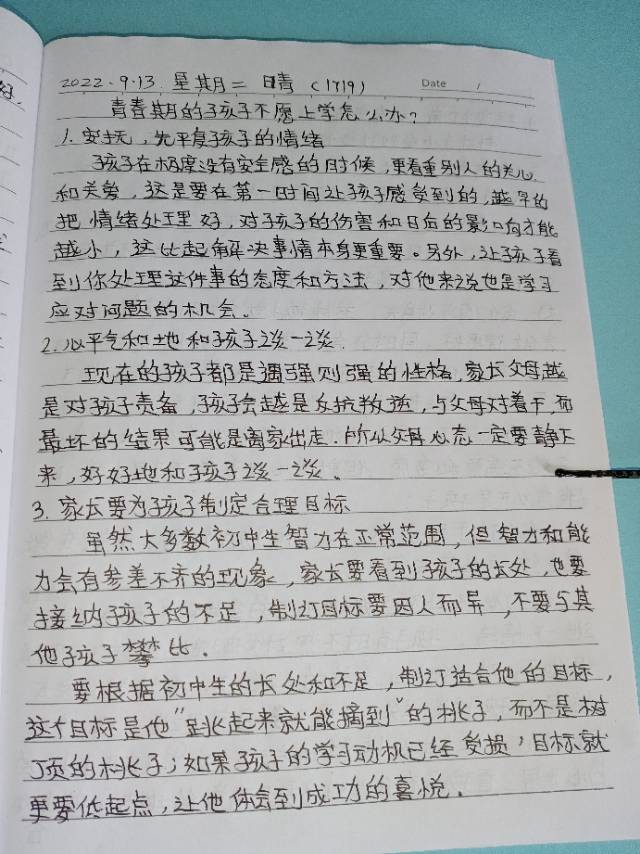 2022.9.13 星期二 晴 (1719) Date /
青春期的孩子不愿上学怎么办?
1. 安抚,先平复孩子的情绪
孩子在极度没有安全感的时候,更看重别人的关心
和关爱,这是要在第一时间让孩子感觉到的,越早的
把情绪处理好,对孩子的伤害和日后的影响才能
越小,这比起解决事情本身更重要。另外,让孩子看
到你处理这件事的态度和方法,对他来说也是学习
应对问题的机会。
2. 心平气和地和孩子谈一谈.
现在的孩子都是遇强则强的性格,家长父母越
是对孩子责备,孩子会越是反抗叛逆,与父母对着干,而
最坏的结果可能是离家出走.所以父母心态一定要静下
来,好好地和孩子谈一谈.
3. 家长要为孩子制定合理目标
虽然大多数初中生智力在正常范围,但智力和能
力会有参差不齐的现象,家长要看到孩子的长处,也要
接纳孩子的不足,制订目标要因人而异,不要与其
他孩子攀比.
要根据初中生的长处和不足,制订适合他的目标,
这个目标是他"跳起来就能摘到"的桃子,而不是树
顶的桃子;如果孩子的学习动机已经受损,目标就
更要低起点,让他体会到成功的喜悦.